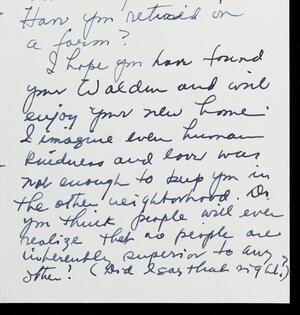 Have you retired on
a farm?
I hope you have found
your Walden and will
enjoy your new home.
I imagine even human
kindness and love was
not enough to keep you in
the other neighborhood. Do
you think people will ever
realize that no people are
inherently superior to any
other? (Did I say that right?)